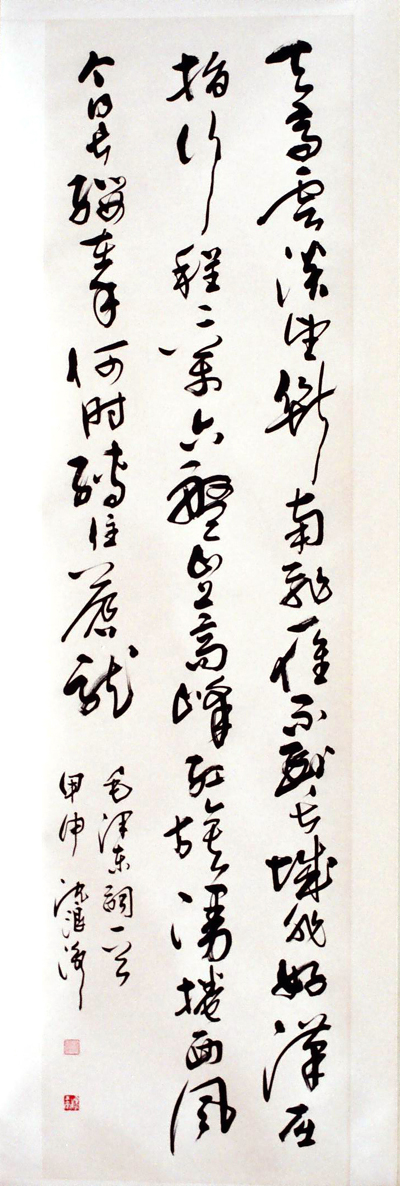 天高雲淡望斷南飛雁不到長城非好漢屈
指行程二萬六盤山上高峰紅旗漫捲西風
今日長纓在手何时縛住蒼龍
毛澤東詞一首
甲申